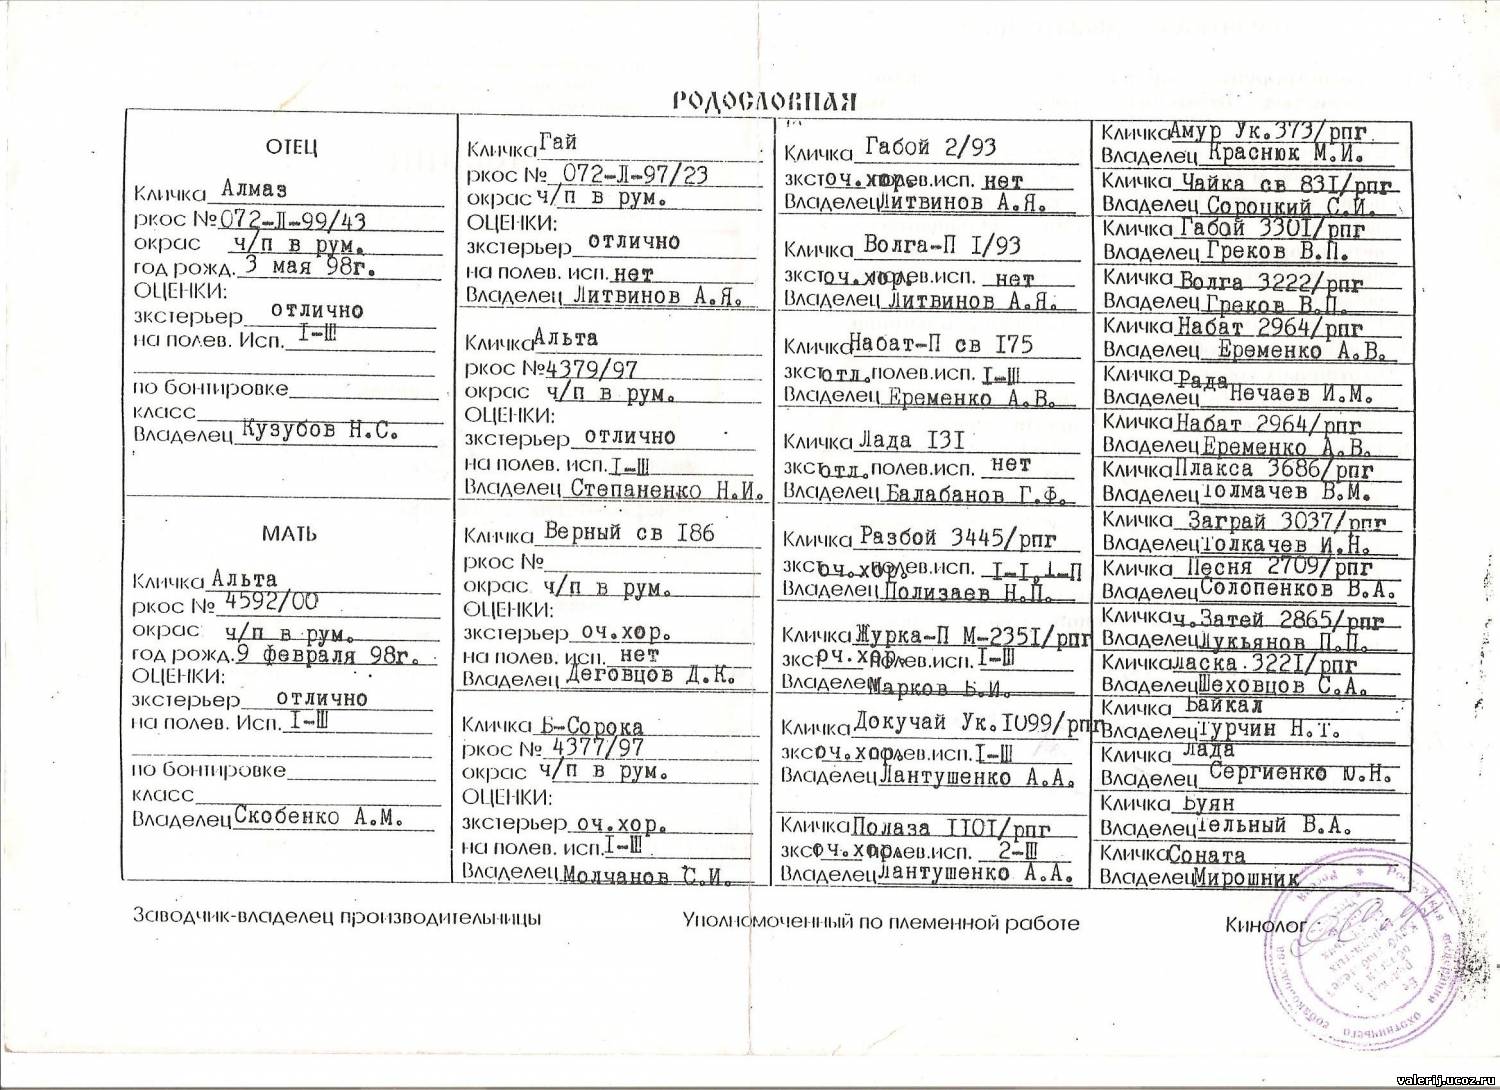 РОДОСЛОВНАЯ
ОТЕЦ
Кличка Алмаз
ркос № 072-Л-99/43
окрас ч/п в рум.
год рожд. 3 мая 98г.
ОЦЕНКИ:
экстерьер отлично
на полев. Исп. I-Ш
по бонтировке
класс
Владелец Кузубов Н.С.
МАТЬ
Кличка Альта
ркос № 4592/00
окрас ч/п в рум.
год рожд. 9 февраля 98г.
ОЦЕНКИ:
экстерьер отлично
на полев. Исп. I-Ш
по бонтировке
класс
Владелец Скобенко А.М.
Кличка Гай
ркос № 072-Л-97/23
окрас ч/п в рум.
ОЦЕНКИ:
экстерьер отлично
на полев. исп. нет
Владелец Литвинов А.Я.
Кличка Альта
ркос № 4379/97
окрас ч/п в рум.
ОЦЕНКИ:
экстерьер отлично
на полев. исп. I-Ш
Владелец Степаненко Н.И.
Кличка Верный св I86
ркос №
окрас ч/п в рум.
ОЦЕНКИ:
экстерьер оч.хор.
на полев. исп. нет
Владелец Деговцов Д.К.
Кличка Б-Сорока
ркос № 4377/97
окрас ч/п в рум.
ОЦЕНКИ:
экстерьер оч.хор.
на полев. исп. I-Ш
Владелец Молчанов С.И.
Кличка Габой 2/93
экст оч.хор. полев.исп. нет
Владелец Литвинов А.Я.
Кличка Волга-П I/93
экст оч.хор. полев.исп. нет
Владелец Литвинов А.Я.
Кличка Набат-П св I75
экст отл. полев.исп. I-Ш
Владелец Еременко А.В.
Кличка Лада I3I
экст отл. полев.исп. нет
Владелец Балабанов Г.Ф.
Кличка Разбой 3445/рпг
экст оч.хор. полев.исп. I-I, I-П
Владелец Полизаев Н.П.
Кличка Журка-П М-235I/рпг
экст оч.хор. полев.исп. I-Ш
Владелец Марков Б.И.
Кличка Докучай Ук.I099/рпг
экст оч.хор. полев.исп. I-Ш
Владелец Лантушенко А.А.
Кличка Полаза II0I/рпг
экст оч.хор. полев.исп. 2-Ш
Владелец Лантушенко А.А.
Кличка Амур Ук.373/рпг
Владелец Краснюк М.И.
Кличка Чайка св 83I/рпг
Владелец Сороцкий С.И.
Кличка Габой 330I/рпг
Владелец Греков В.П.
Кличка Волга 3222/рпг
Владелец Греков В.П.
Кличка Набат 2964/рпг
Владелец Еременко А.В.
Кличка Рада
Владелец Нечаев И.М.
Кличка Набат 2964/рпг
Владелец Еременко А.В.
Кличка Плакса 3686/рпг
Владелец Толмачев В.М.
Кличка Заграй 3037/рпг
Владелец Толкачев И.Н.
Кличка Песня 2709/рпг
Владелец Солопенков В.А.
Кличка ч.Затей 2865/рпг
Владелец Лукьянов П.П.
Кличка Ласка 322I/рпг
Владелец Шеховцов С.А.
Кличка Байкал
Владелец Турчин Н.Т.
Кличка Лада
Владелец Сергиенко Ю.Н.
Кличка Буян
Владелец Тельный В.А.
Кличка Соната
Владелец Мирошник
Заводчик-владелец производительницы
Уполномоченный по племенной работе
Кинолог
охотничьего собаководства
valerij.ucoz.ru